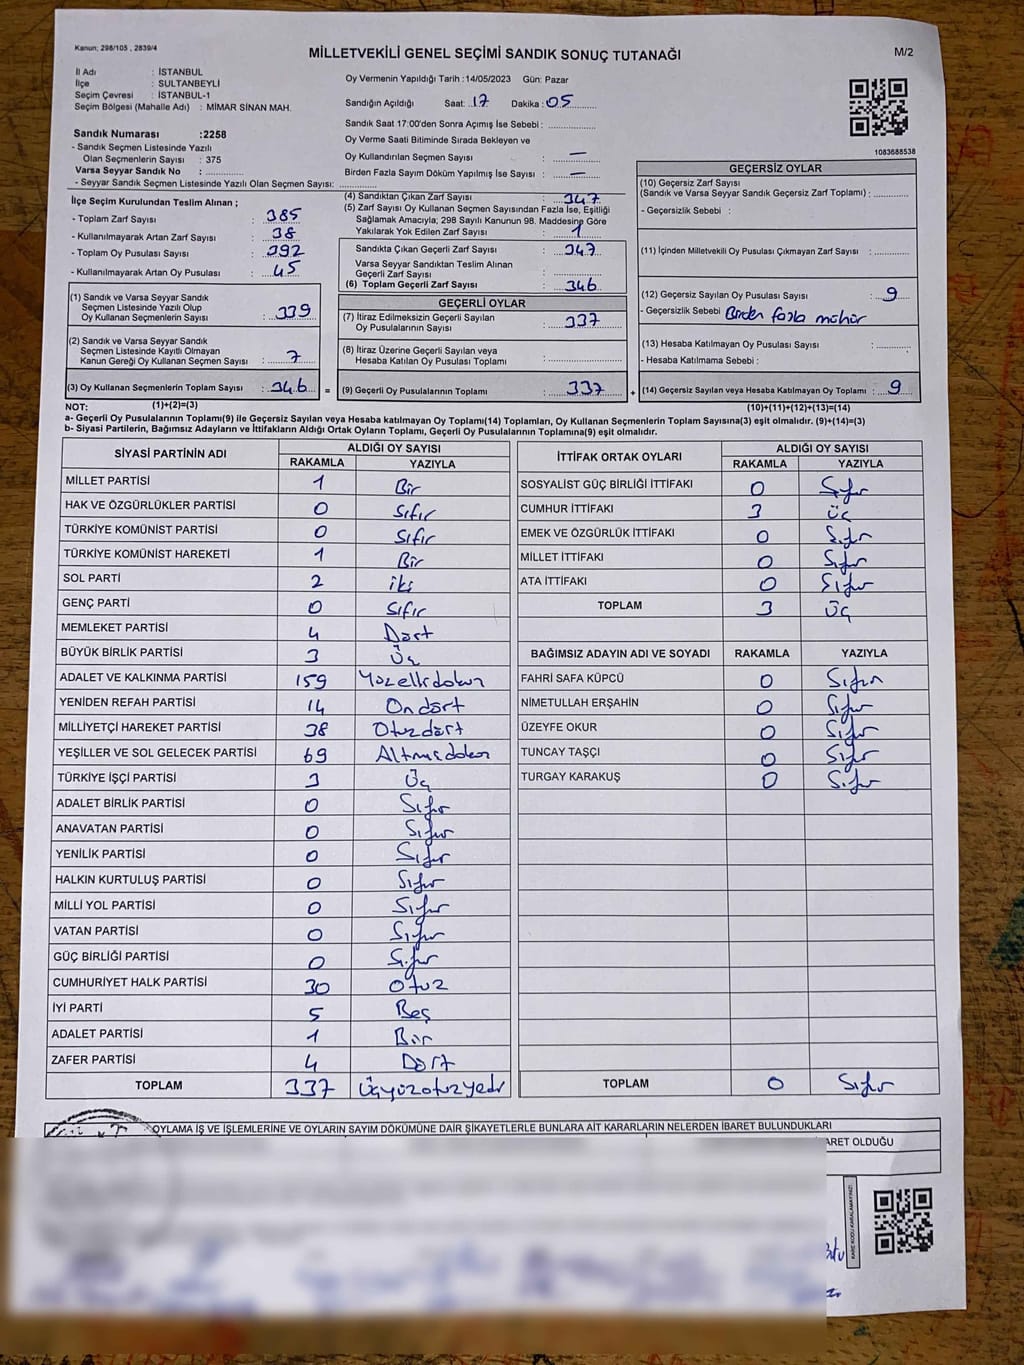 Kanun; 298/105 , 2839/4
MİLLETVEKİLİ GENEL SEÇİMİ SANDIK SONUÇ TUTANAĞI
M/2
İl Adı : İSTANBUL
İlçe : SULTANBEYLİ
Seçim Çevresi : İSTANBUL-1
Seçim Bölgesi (Mahalle Adı) : MİMAR SİNAN MAH.
Sandık Numarası :2258
- Sandık Seçmen Listesinde Yazılı
Olan Seçmenlerin Sayısı : 375
Varsa Seyyar Sandık No :
- Seyyar Sandık Seçmen Listesinde Yazılı Olan Seçmen Sayısı:
Oy Vermenin Yapıldığı Tarih :14/05/2023 Gün: Pazar
Sandığın Açıldığı Saat: 17 Dakika: 05
Sandık Saat 17:00'den Sonra Açımış İse Sebebi :
Oy Verme Saati Bitiminde Sırada Bekleyen ve
Oy Kullandırılan Seçmen Sayısı : —
Birden Fazla Sayım Döküm Yapılmış İse Sayısı : —
1083688538
İlçe Seçim Kurulundan Teslim Alınan ;
- Toplam Zarf Sayısı : 385
- Kullanılmayarak Artan Zarf Sayısı : 38
- Toplam Oy Pusulası Sayısı : 392
- Kullanılmayarak Artan Oy Pusulası : 45
(1) Sandık ve Varsa Seyyar Sandık
Seçmen Listesinde Yazılı Olup
Oy Kullanan Seçmenlerin Sayısı : 339
(2) Sandık ve Varsa Seyyar Sandık
Seçmen Listesinde Kayıtlı Olmayan
Kanun Gereği Oy Kullanan Seçmen Sayısı : 7
(3) Oy Kullanan Seçmenlerin Toplam Sayısı : 346 =
(4) Sandıktan Çıkan Zarf Sayısı : 347
(5) Zarf Sayısı Oy Kullanan Seçmen Sayısından Fazla İse, Eşitliği
Sağlamak Amacıyla; 298 Sayılı Kanunun 98. Maddesine Göre
Yakılarak Yok Edilen Zarf Sayısı : 1
Sandıkta Çıkan Geçerli Zarf Sayısı : 347
Varsa Seyyar Sandıktan Teslim Alınan
Geçerli Zarf Sayısı :
(6) Toplam Geçerli Zarf Sayısı : 346
GEÇERLİ OYLAR
(7) İtiraz Edilmeksizin Geçerli Sayılan
Oy Pusulalarının Sayısı : 337
(8) İtiraz Üzerine Geçerli Sayılan veya
Hesaba Katılan Oy Pusulası Toplamı :
(9) Geçerli Oy Pusulalarının Toplamı : 337 +
GEÇERSİZ OYLAR
(10) Geçersiz Zarf Sayısı
(Sandık ve Varsa Seyyar Sandık Geçersiz Zarf Toplamı) :
- Geçersizlik Sebebi :
(11) İçinden Milletvekili Oy Pusulası Çıkmayan Zarf Sayısı :
(12) Geçersiz Sayılan Oy Pusulası Sayısı : 9
- Geçersizlik Sebebi Birden fazla mühür
(13) Hesaba Katılmayan Oy Pusulası Sayısı :
- Hesaba Katılmama Sebebi :
(14) Geçersiz Sayılan veya Hesaba Katılmayan Oy Toplamı : 9
NOT: (1)+(2)=(3)
(10)+(11)+(12)+(13)=(14)
a- Geçerli Oy Pusulalarının Toplamı(9) ile Geçersiz Sayılan veya Hesaba katılmayan Oy Toplamı(14) Toplamları, Oy Kullanan Seçmenlerin Toplam Sayısına(3) eşit olmalıdır. (9)+(14)=(3)
b- Siyasi Partilerin, Bağımsız Adayların ve İttifakların Aldığı Ortak Oyların Toplamı, Geçerli Oy Pusulalarının Toplamına(9) eşit olmalıdır.
SİYASİ PARTİNİN ADI ALDIĞI OY SAYISI
RAKAMLA YAZIYLA
MİLLET PARTİSİ 1 Bir
HAK VE ÖZGÜRLÜKLER PARTİSİ 0 Sıfır
TÜRKİYE KOMÜNİST PARTİSİ 0 Sıfır
TÜRKİYE KOMÜNİST HAREKETİ 1 Bir
SOL PARTİ 2 iki
GENÇ PARTİ 0 Sıfır
MEMLEKET PARTİSİ 4 Dört
BÜYÜK BİRLİK PARTİSİ 3 Üç
ADALET VE KALKINMA PARTİSİ 159 Yüzellidokuz
YENİDEN REFAH PARTİSİ 14 Ondört
MİLLİYETÇİ HAREKET PARTİSİ 38 Otuzdört
YEŞİLLER VE SOL GELECEK PARTİSİ 69 Altmışdokuz
TÜRKİYE İŞÇİ PARTİSİ 3 Üç
ADALET BİRLİK PARTİSİ 0 Sıfır
ANAVATAN PARTİSİ 0 Sıfır
YENİLİK PARTİSİ 0 Sıfır
HALKIN KURTULUŞ PARTİSİ 0 Sıfır
MİLLİ YOL PARTİSİ 0 Sıfır
VATAN PARTİSİ 0 Sıfır
GÜÇ BİRLİĞİ PARTİSİ 0 Sıfır
CUMHURİYET HALK PARTİSİ 30 Otuz
İYİ PARTİ 5 Beş
ADALET PARTİSİ 1 Bir
ZAFER PARTİSİ 4 Dört
TOPLAM 337 Üçyüzotuzyedi
İTTİFAK ORTAK OYLARI ALDIĞI OY SAYISI
RAKAMLA YAZIYLA
SOSYALİST GÜÇ BİRLİĞİ İTTİFAKI 0 Sıfır
CUMHUR İTTİFAKI 3 Üç
EMEK VE ÖZGÜRLÜK İTTİFAKI 0 Sıfır
MİLLET İTTİFAKI 0 Sıfır
ATA İTTİFAKI 0 Sıfır
TOPLAM 3 Üç
BAĞIMSIZ ADAYIN ADI VE SOYADI RAKAMLA YAZIYLA
FAHRİ SAFA KÜPCÜ 0 Sıfır
NİMETULLAH ERŞAHİN 0 Sıfır
ÜZEYFE OKUR 0 Sıfır
TUNCAY TAŞÇI 0 Sıfır
TURGAY KARAKUŞ 0 Sıfır
TOPLAM 0 Sıfır
OYLAMA İŞ VE İŞLEMLERİNE VE OYLARIN SAYIM DÖKÜMÜNE DAİR ŞİKAYETLERLE BUNLARA AİT KARARLARIN NELERDEN İBARET BULUNDUKLARI
ARET OLDUĞU
KARE KODU KARALAMAYINIZ!